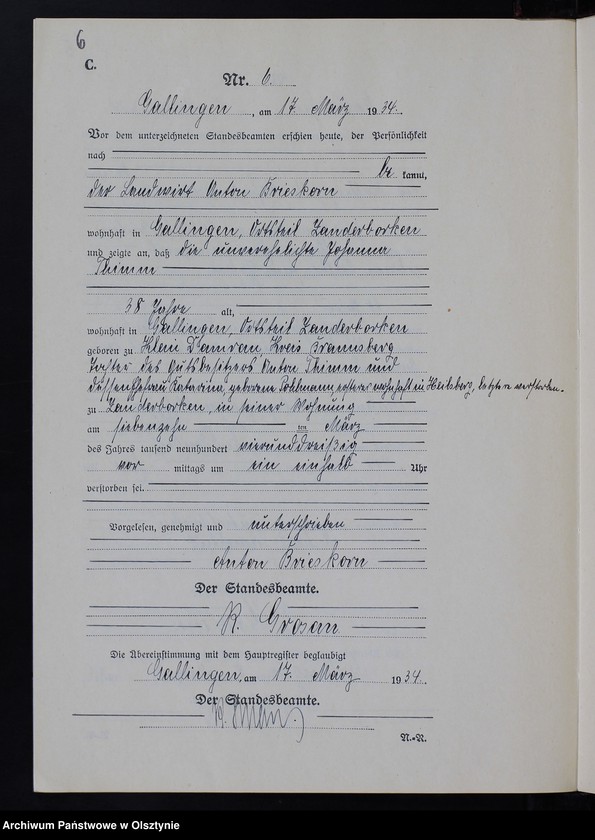 6
C.
Nr. 6.
Gallingen, am 17. März 1934.
Vor dem unterzeichneten Standesbeamten erschien heute, der Persönlichkeit
nach
be kannt,
der Landwirt Anton Brieskorn
wohnhaft in Gallingen, Ortsteil Zanderborken
und zeigte an, daß die unverehelichte Johanna
Thimm
38 Jahre alt,
wohnhaft in Gallingen, Ortsteil Zanderborken
geboren zu Klein Damrau Kreis Braunsberg
Tochter des Gutsbesitzers Anton Thimm und
dessen Ehefrau Katarina, geborene Pohlmann, ersterer wohnhaft in Heilsberg, letztere verstorben.
zu Zanderborken, in seiner Wohnung
am siebenzehn ten März
des Jahres tausend neunhundert vierunddreißig
vor mittags um ein einhalb Uhr
verstorben sei.
Vorgelesen, genehmigt und unterschrieben
Anton Brieskorn
Der Standesbeamte.
R. Grosan
Die Übereinstimmung mit dem Hauptregister beglaubigt
Gallingen, am 17. März 1934.
Der Standesbeamte.
N.-R.
Archiwum Państwowe w Olsztynie